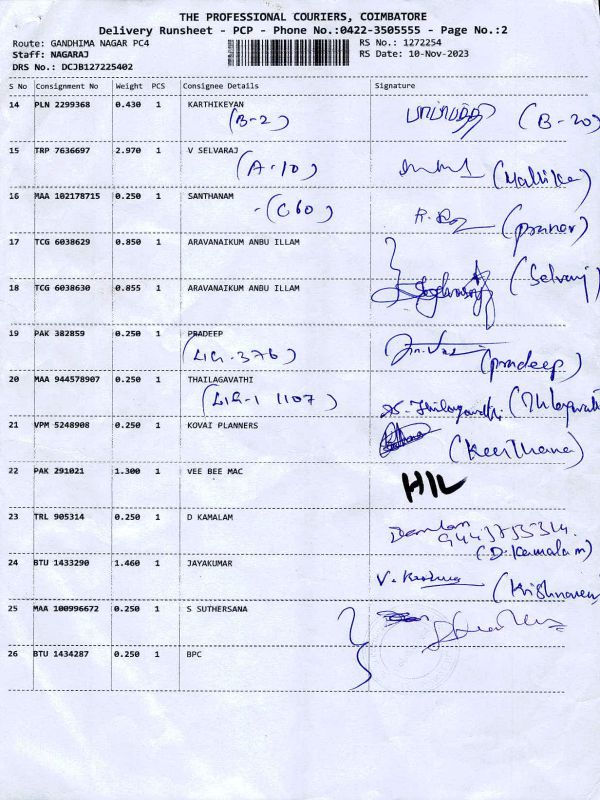 THE PROFESSIONAL COURIERS, COIMBATORE
Delivery Runsheet - PCP - Phone No.:0422-3505555 - Page No.:2
Route: GANDHIMA NAGAR PC4 RS No.: 1272254
Staff: NAGARAJ RS Date: 10-Nov-2023
DRS No.: DCJB127225402
S No Consignment No Weight PCS Consignee Details Signature
14 PLN 2299368 0.430 1 KARTHIKEYAN
(B-2) (B-20)
15 TRP 7636697 2.970 1 V SELVARAJ
(A-10) (Mallika)
16 MAA 102178715 0.250 1 SANTHANAM
-(C60)
17 TCG 6038629 0.850 1 ARAVANAIKUM ANBU ILLAM
(Selvaraj
18 TCG 6038630 0.855 1 ARAVANAIKUM ANBU ILLAM
19 PAK 382859 0.250 1 PRADEEP
(LIG-376) (pradeep)
20 MAA 944578907 0.250 1 THAILAGAVATHI
(LIG-1 1107)
21 VPM 5248908 0.250 1 KOVAI PLANNERS
(Keerthana)
22 PAK 291021 1.300 1 VEE BEE MAC
HIL
23 TRL 905314 0.250 1 D KAMALAM
(D.Kamalam)
24 BTU 1433290 1.460 1 JAYAKUMAR
V. Krishna
25 MAA 100996672 0.250 1 S SUTHERSANA
26 BTU 1434287 0.250 1 BPC